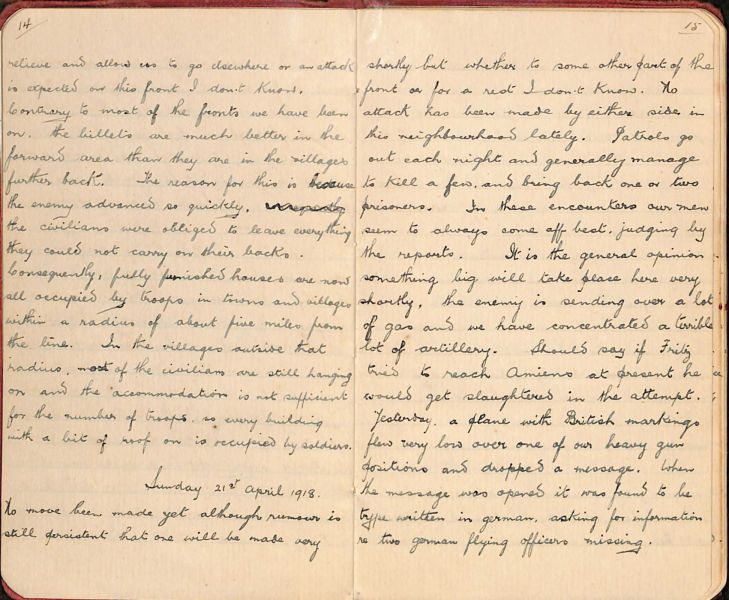 14
relieve and allow us to go elsewhere or an attack
is expected on this front I don't know.
Contrary to most of the fronts we have been
on. the billets are much better in the
forward area than they are in the villages
further back. The reason for this is because
the enemy advanced so quickly,
the civilians were obliged to leave everything
they could not carry on their backs.
Consequently, fully furnished houses are now
all occupied by troops in towns and villages
within a radius of about five miles from
the line. In the villages outside that
radius, most of the civilians are still hanging
on and the accommodation is not sufficient
for the number of troops. so every building
with a bit of roof on is occupied by soldiers.
Sunday 21st April 1918.
No move been made yet although rumour is
still persistent that one will be made very
15
shortly but whether to some other part of the
front or for a rest I don't know. No
attack has been made by either side in
this neighbourhood lately. Patrols go
out each night and generally manage
to kill a few, and bring back one or two
prisoners. In these encounters our men
seem to always come off best, judging by
the reports. It is the general opinion
something big will take place here very
shortly, the enemy is sending over a lot
of gas and we have concentrated a terrible
lot of artillery. Should say if Fritz
tried to reach Amiens at present he
would get slaughtered in the attempt.
Yesterday. a plane with British markings
flew very low over one of our heavy gun
positions and dropped a message. When
the message was opened it was found to be
type written in german, asking for information
re two german flying officers missing.